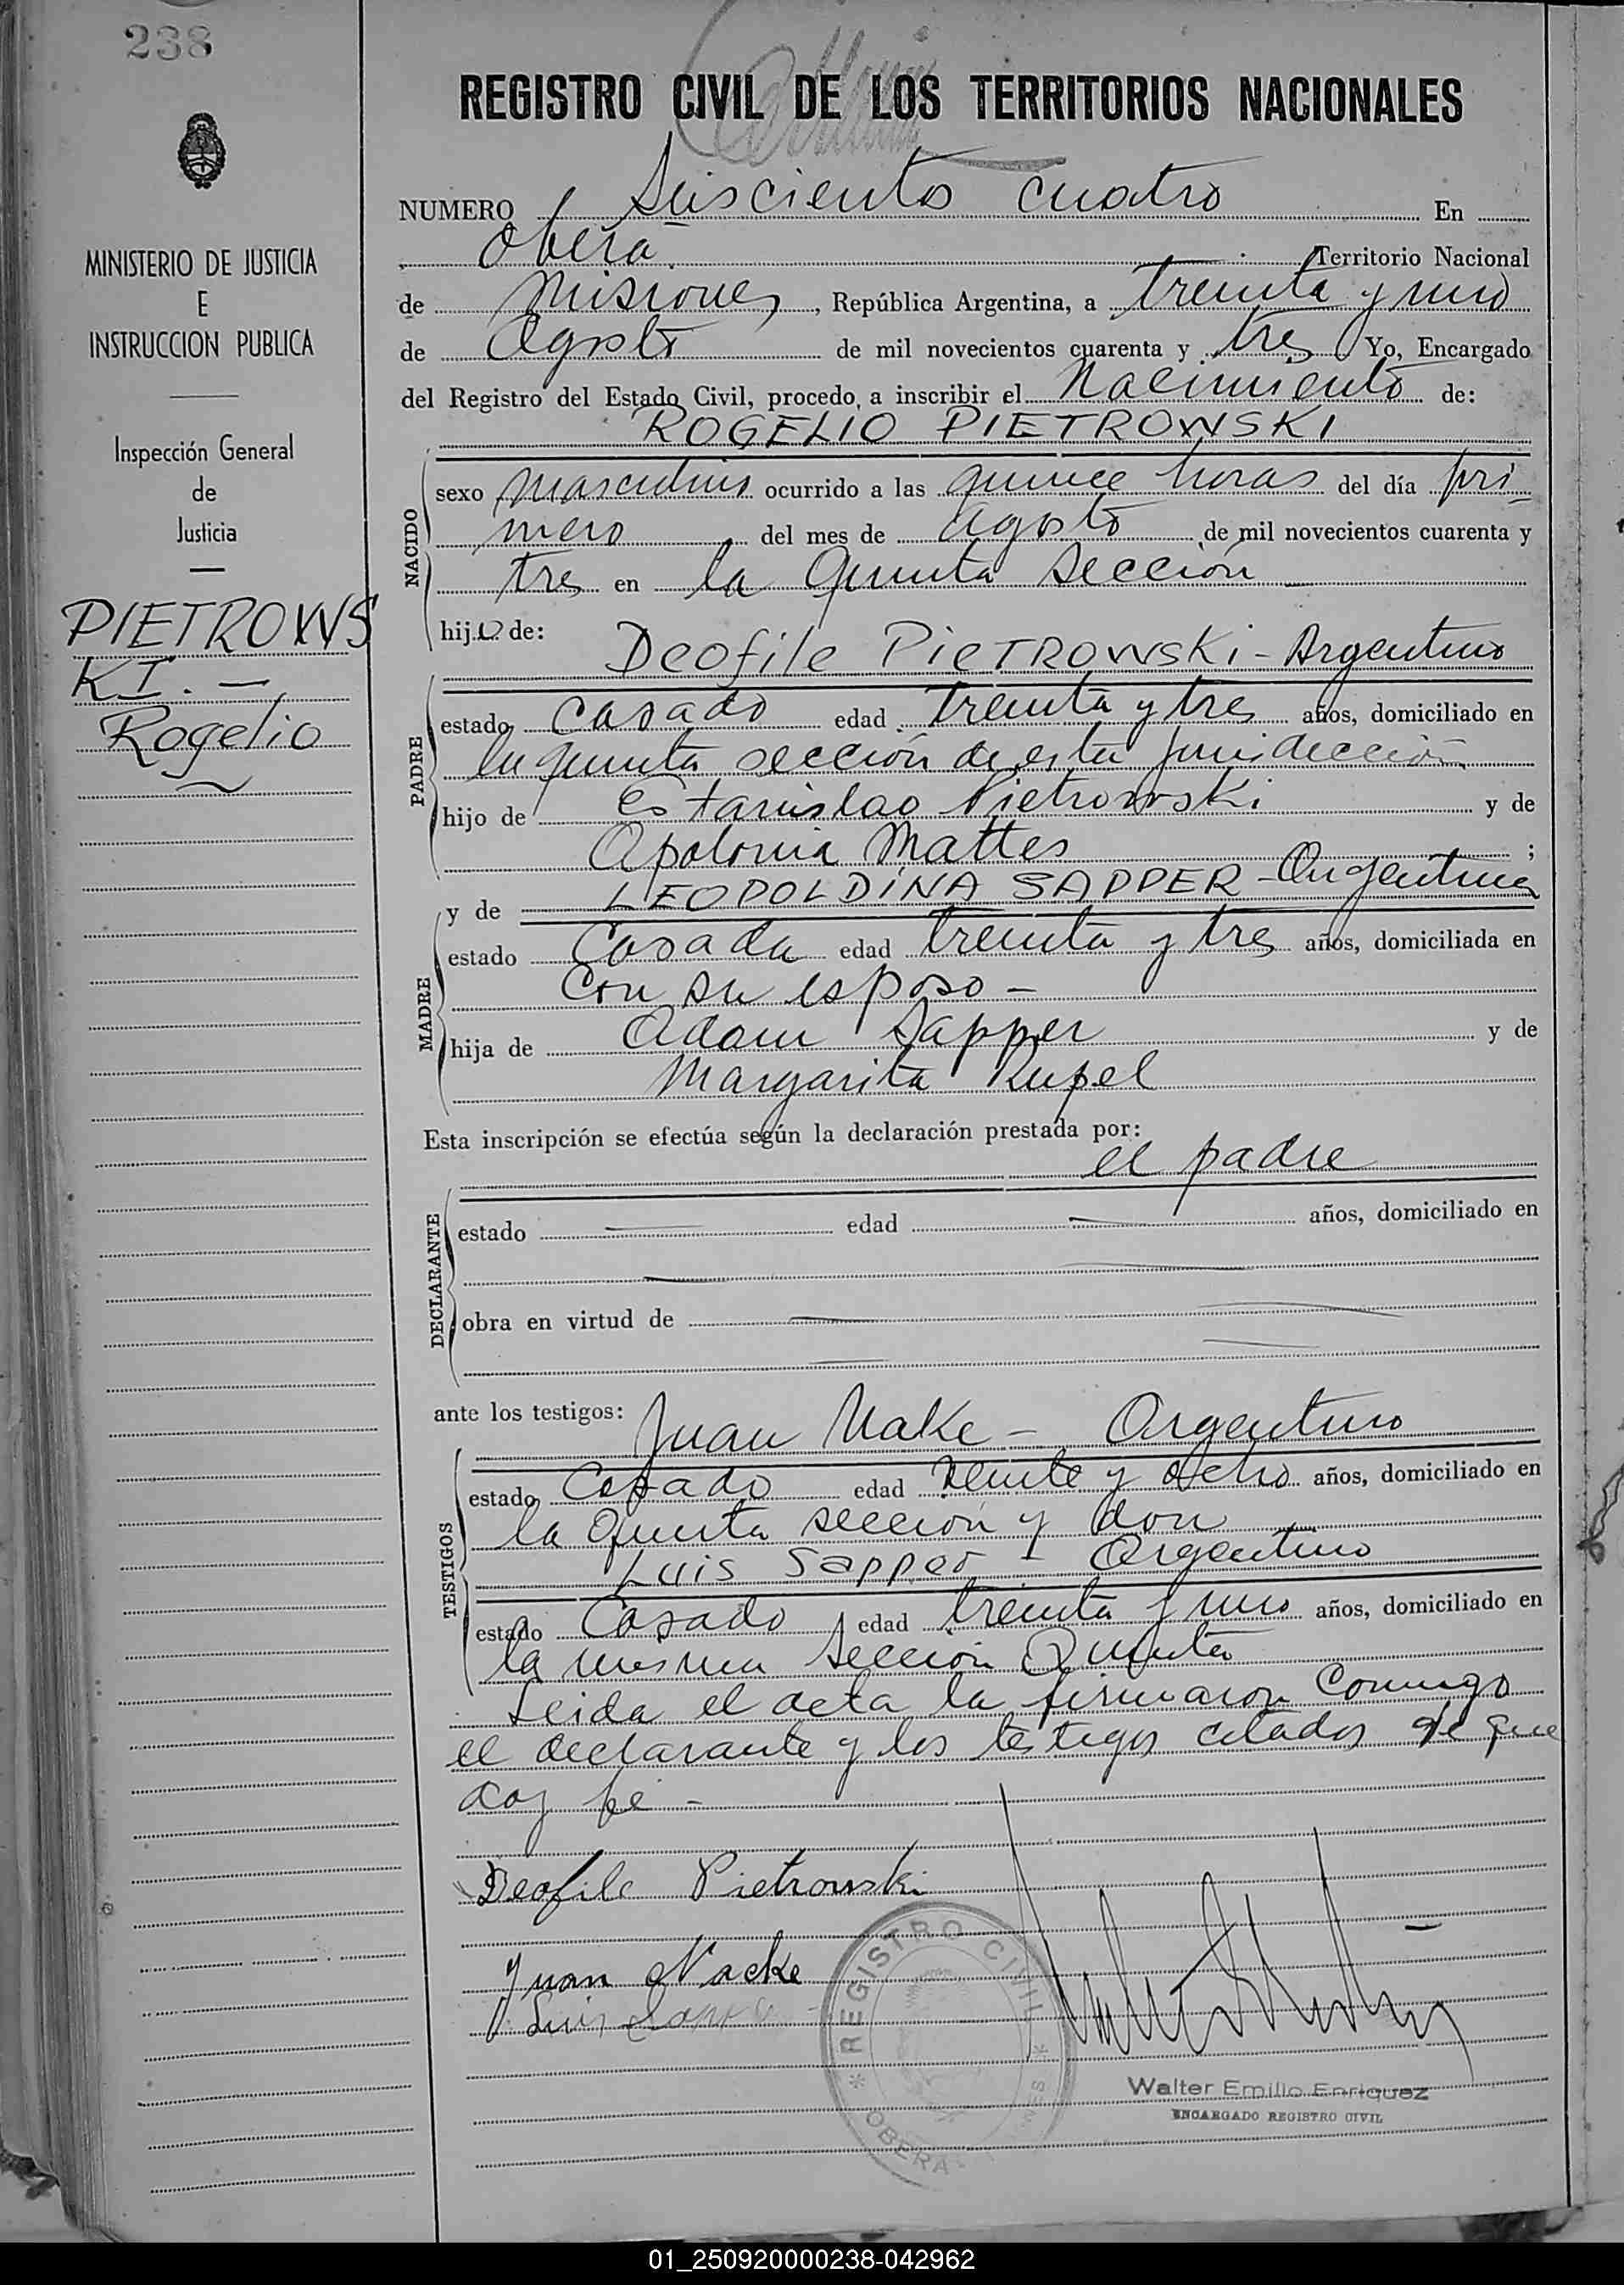 238
REGISTRO CIVIL DE LOS TERRITORIOS NACIONALES
MINISTERIO DE JUSTICIA
E
INSTRUCCION PUBLICA
Inspección General
de
Justicia
PIETROWS
KI. -
Rogelio
NUMERO Seiscientos cuatro En
Oberá Territorio Nacional
de Misiones, República Argentina, a treinta y uno
de Agosto de mil novecientos cuarenta y tres Yo, Encargado
del Registro del Estado Civil, procedo a inscribir el Nacimiento de:
ROGELIO PIETROWSKI
NACIDO
sexo masculino ocurrido a las quince horas del día pri-
mero del mes de agosto de mil novecientos cuarenta y
tres en la Quinta Sección
hijo de:
Deofile PieTROWSKi - Argentino
PADRE
estado casado edad treinta y tres años, domiciliado en
la quinta sección de esta jurisdicción
hijo de Estanislao Pietrowski y de
Apolonia Mattes ;
y de LEOPOLDINA SAPPER - Argentina
MADRE
estado Casada edad treinta y tres años, domiciliada en
con su esposo -
hija de Adam Sapper y de
Margarita Rupel
Esta inscripción se efectúa según la declaración prestada por:
el padre
DECLARANTE
estado edad años, domiciliado en
obra en virtud de
ante los testigos:
Juan Nake - Argentino
TESTIGOS
estado Casado edad veinte y ocho años, domiciliado en
la Quinta sección y don
Luis Sapper - Argentino
estado Casado edad treinta y uno años, domiciliado en
la misma sección Quinta
Leida el acta la firmaron conmigo
el declarante y los testigos citados de que
doy fe -
Deofile Pietrowski
Juan Nacke
Luis
REGISTRO CIVIL
OBERA
Walter Emilio Enriquez
ENCARGADO REGISTRO CIVIL
01_250920000238-042962